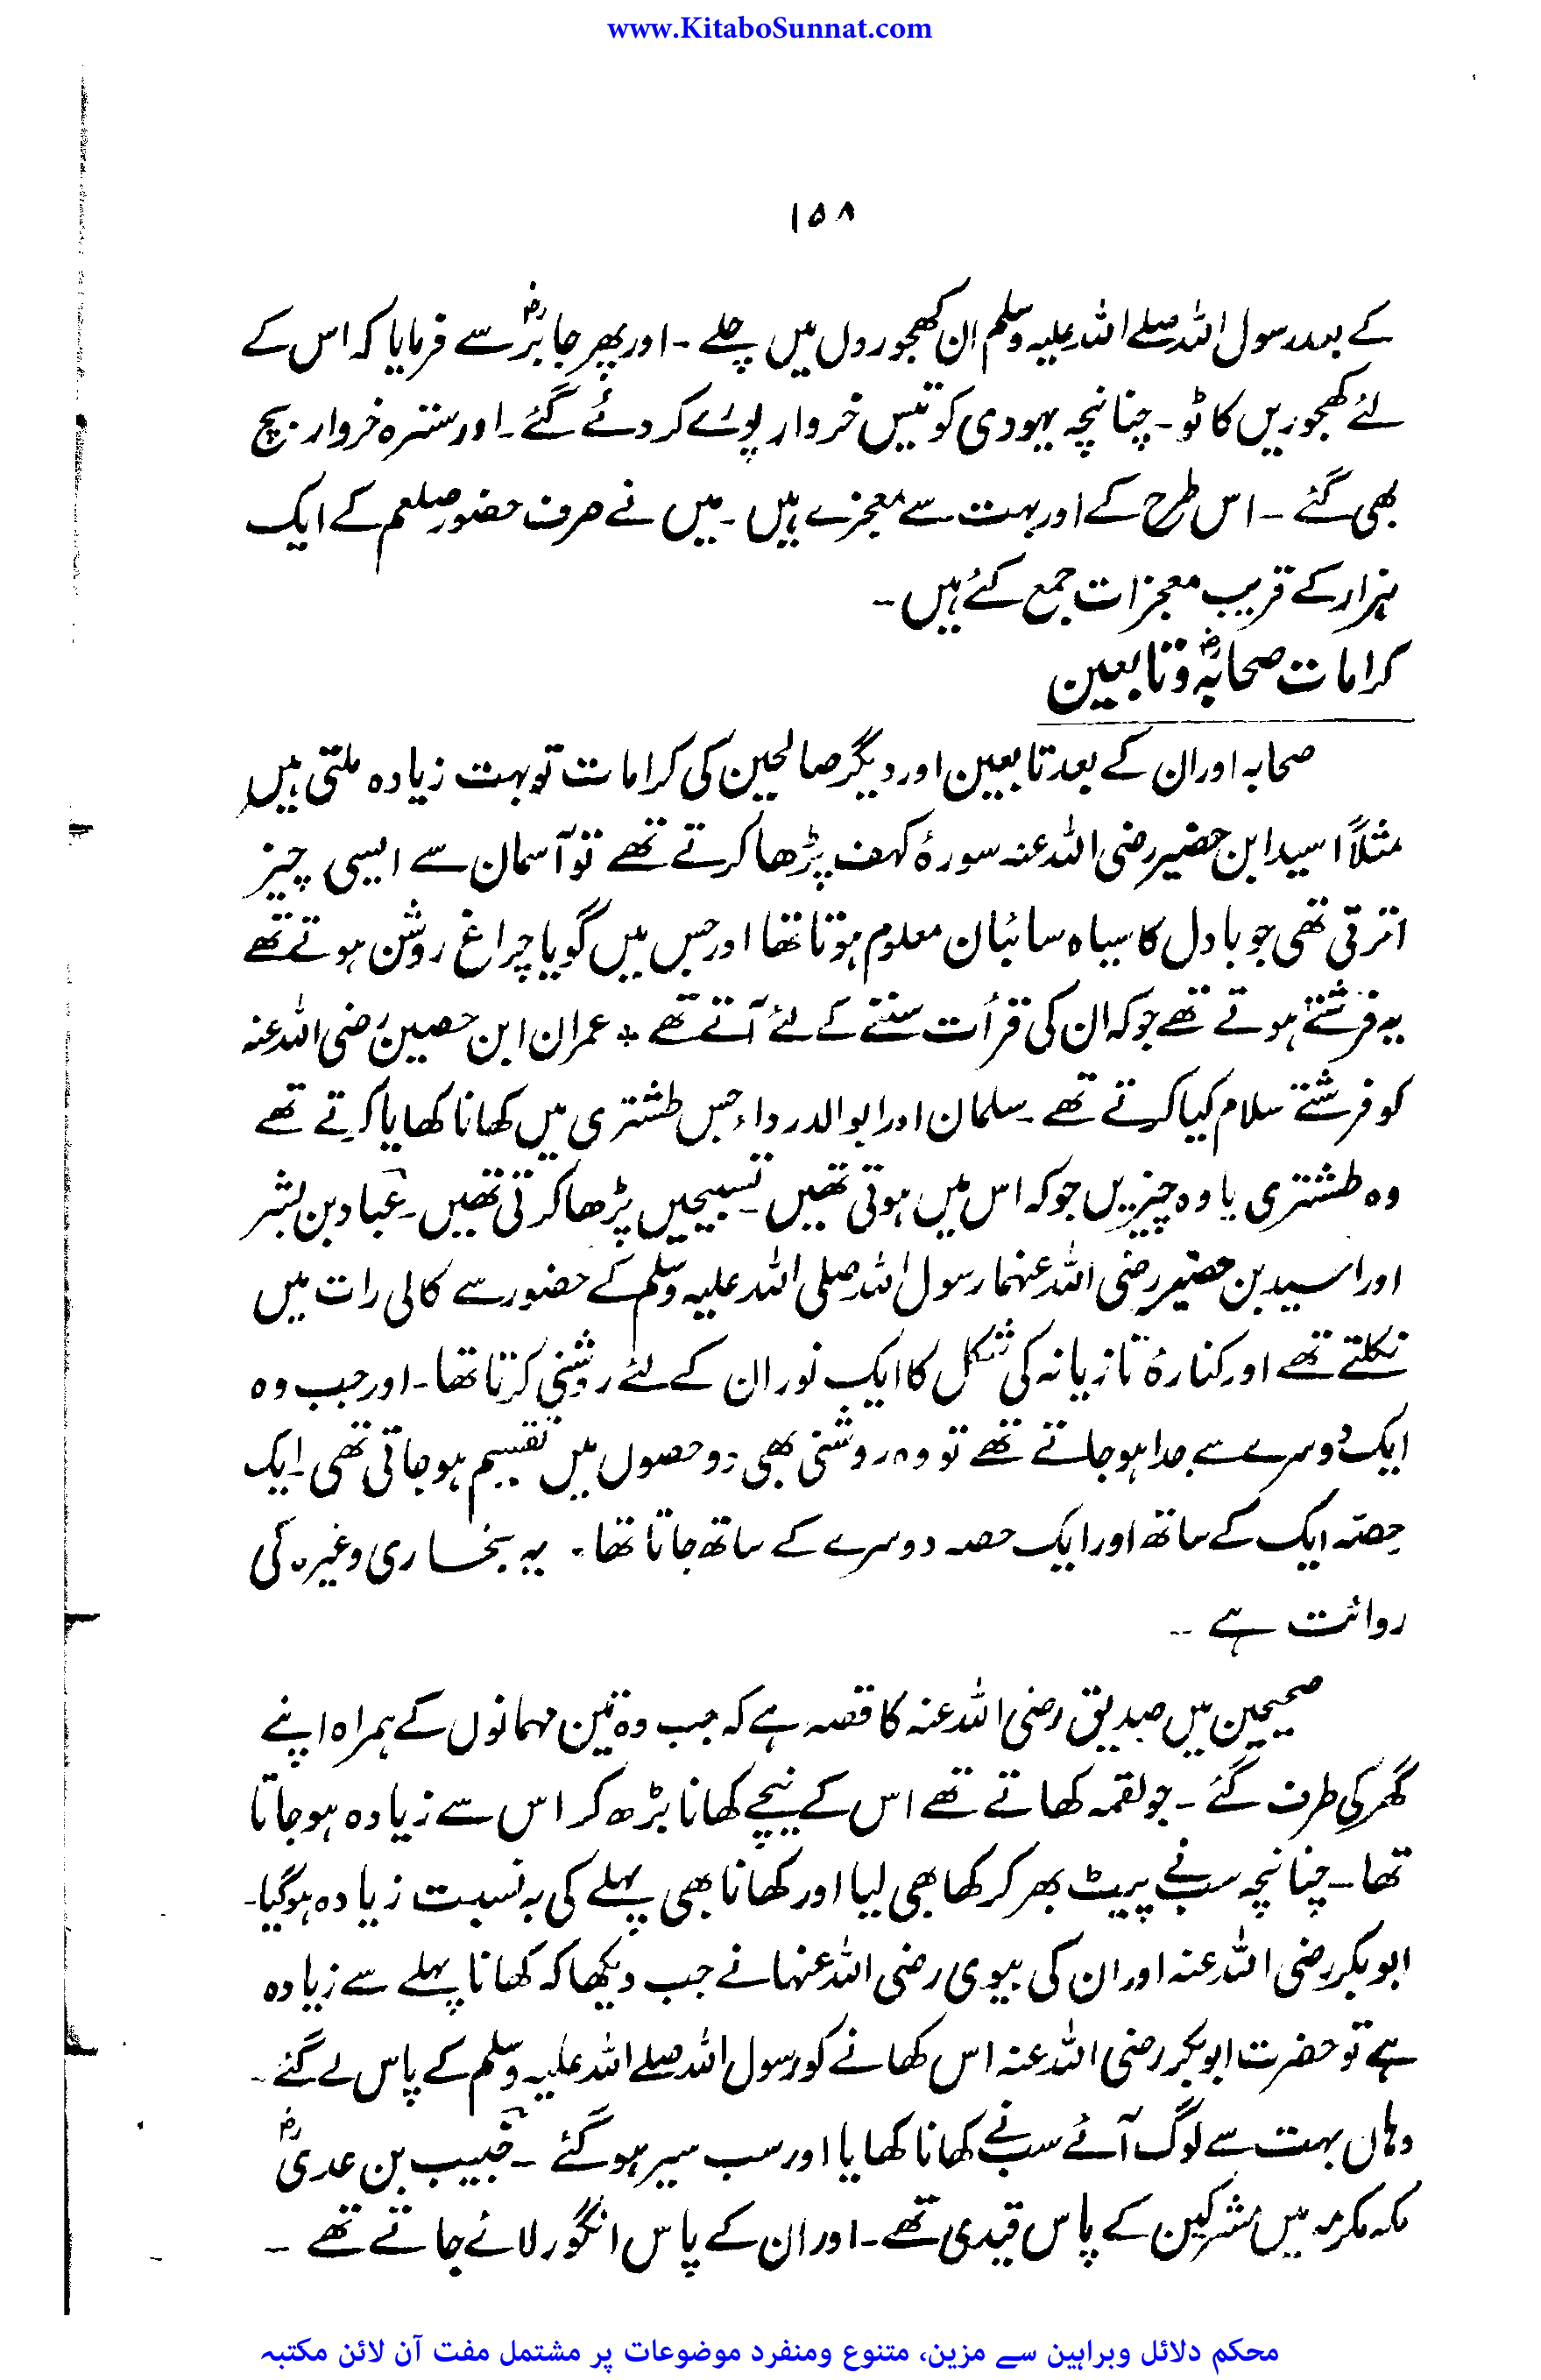 www.KitaboSunnat.com
۱۵۸
کے بعد رسول اللہ صلے اللہ علیہ وسلم ان کھجوروں میں چلے ۔ اور پھر جابرؓ سے فرمایا کہ اس کے
لئے کھجوریں کاٹو ۔ چنانچہ یہودی کو تیس خروار پورے کر دئے گئے ۔ اور سترہ خروار بچ
بھی گئے ۔ اس طرح کے اور بہت سے معجزے ہیں ۔ میں نے صرف حضور صلعم کے ایک
ہزار کے قریب معجزات جمع کئے ہیں ۔
کرامات صحابہؓ و تابعین
صحابہ اور ان کے بعد تابعین اور دیگر صالحین کی کرامات تو بہت زیادہ ملتی ہیں
مثلاً اسید ابن حضیر رضی اللہ عنہ سورۂ کہف پڑھا کرتے تھے تو آسمان سے ایسی چیز
اترتی تھی جو بادل کا سیاہ سائبان معلوم ہوتا تھا اور جس میں گویا چراغ روشن ہوتے تھے
یہ فرشتے ہوتے تھے جو کہ ان کی قرأت سننے کے لئے آتے تھے * عمران ابن حصین رضی اللہ عنہ
کو فرشتے سلام کیا کرتے تھے ۔ سلمان اور ابوالدرداء جس طشتری میں کھانا کھایا کرتے تھے
وہ طشتری یا وہ چیزیں جو کہ اس میں ہوتی تھیں ۔ تسبیحیں پڑھا کرتی تھیں ۔ عباد بن بشر
اور اسید بن حضیر رضی اللہ عنہما رسول اللہ صلی اللہ علیہ وسلم کے حضور سے کالی رات میں
نکلتے تھے اور کنارۂ تازیانہ کی شکل کا ایک نور ان کے لئے روشنی کرتا تھا ۔ اور جب وہ
ایک دوسرے سے جدا ہو جاتے تھے تو وہ روشنی بھی دو حصوں میں تقسیم ہو جاتی تھی ۔ ایک
حصہ ایک کے ساتھ اور ایک حصہ دوسرے کے ساتھ جاتا تھا ۔ یہ بخاری وغیرہ کی
روائت ہے ۔
صحیحین میں صدیق رضی اللہ عنہ کا قصہ ہے کہ جب وہ تین مہمانوں کے ہمراہ اپنے
گھر کی طرف گئے ۔ جو لقمہ کھاتے تھے اس کے نیچے کھانا بڑھ کر اس سے زیادہ ہو جاتا
تھا ۔ چنانچہ سب نے پیٹ بھر کر کھا بھی لیا اور کھانا بھی پہلے کی بہ نسبت زیادہ ہو گیا ۔
ابوبکر رضی اللہ عنہ اور ان کی بیوی رضی اللہ عنہا نے جب دیکھا کہ کھانا پہلے سے زیادہ
ہے تو حضرت ابوبکر رضی اللہ عنہ اس کھانے کو رسول اللہ صلے اللہ علیہ وسلم کے پاس لے گئے ۔
وہاں بہت سے لوگ آئے سب نے کھانا کھایا اور سب سیر ہو گئے ۔ خبیب بن عدیؓ
مکہ مکرمہ میں مشرکین کے پاس قیدی تھے ۔ اور ان کے پاس انگور لائے جاتے تھے ۔
محکم دلائل وبراہین سے مزین، متنوع ومنفرد موضوعات پر مشتمل مفت آن لائن مکتبہ